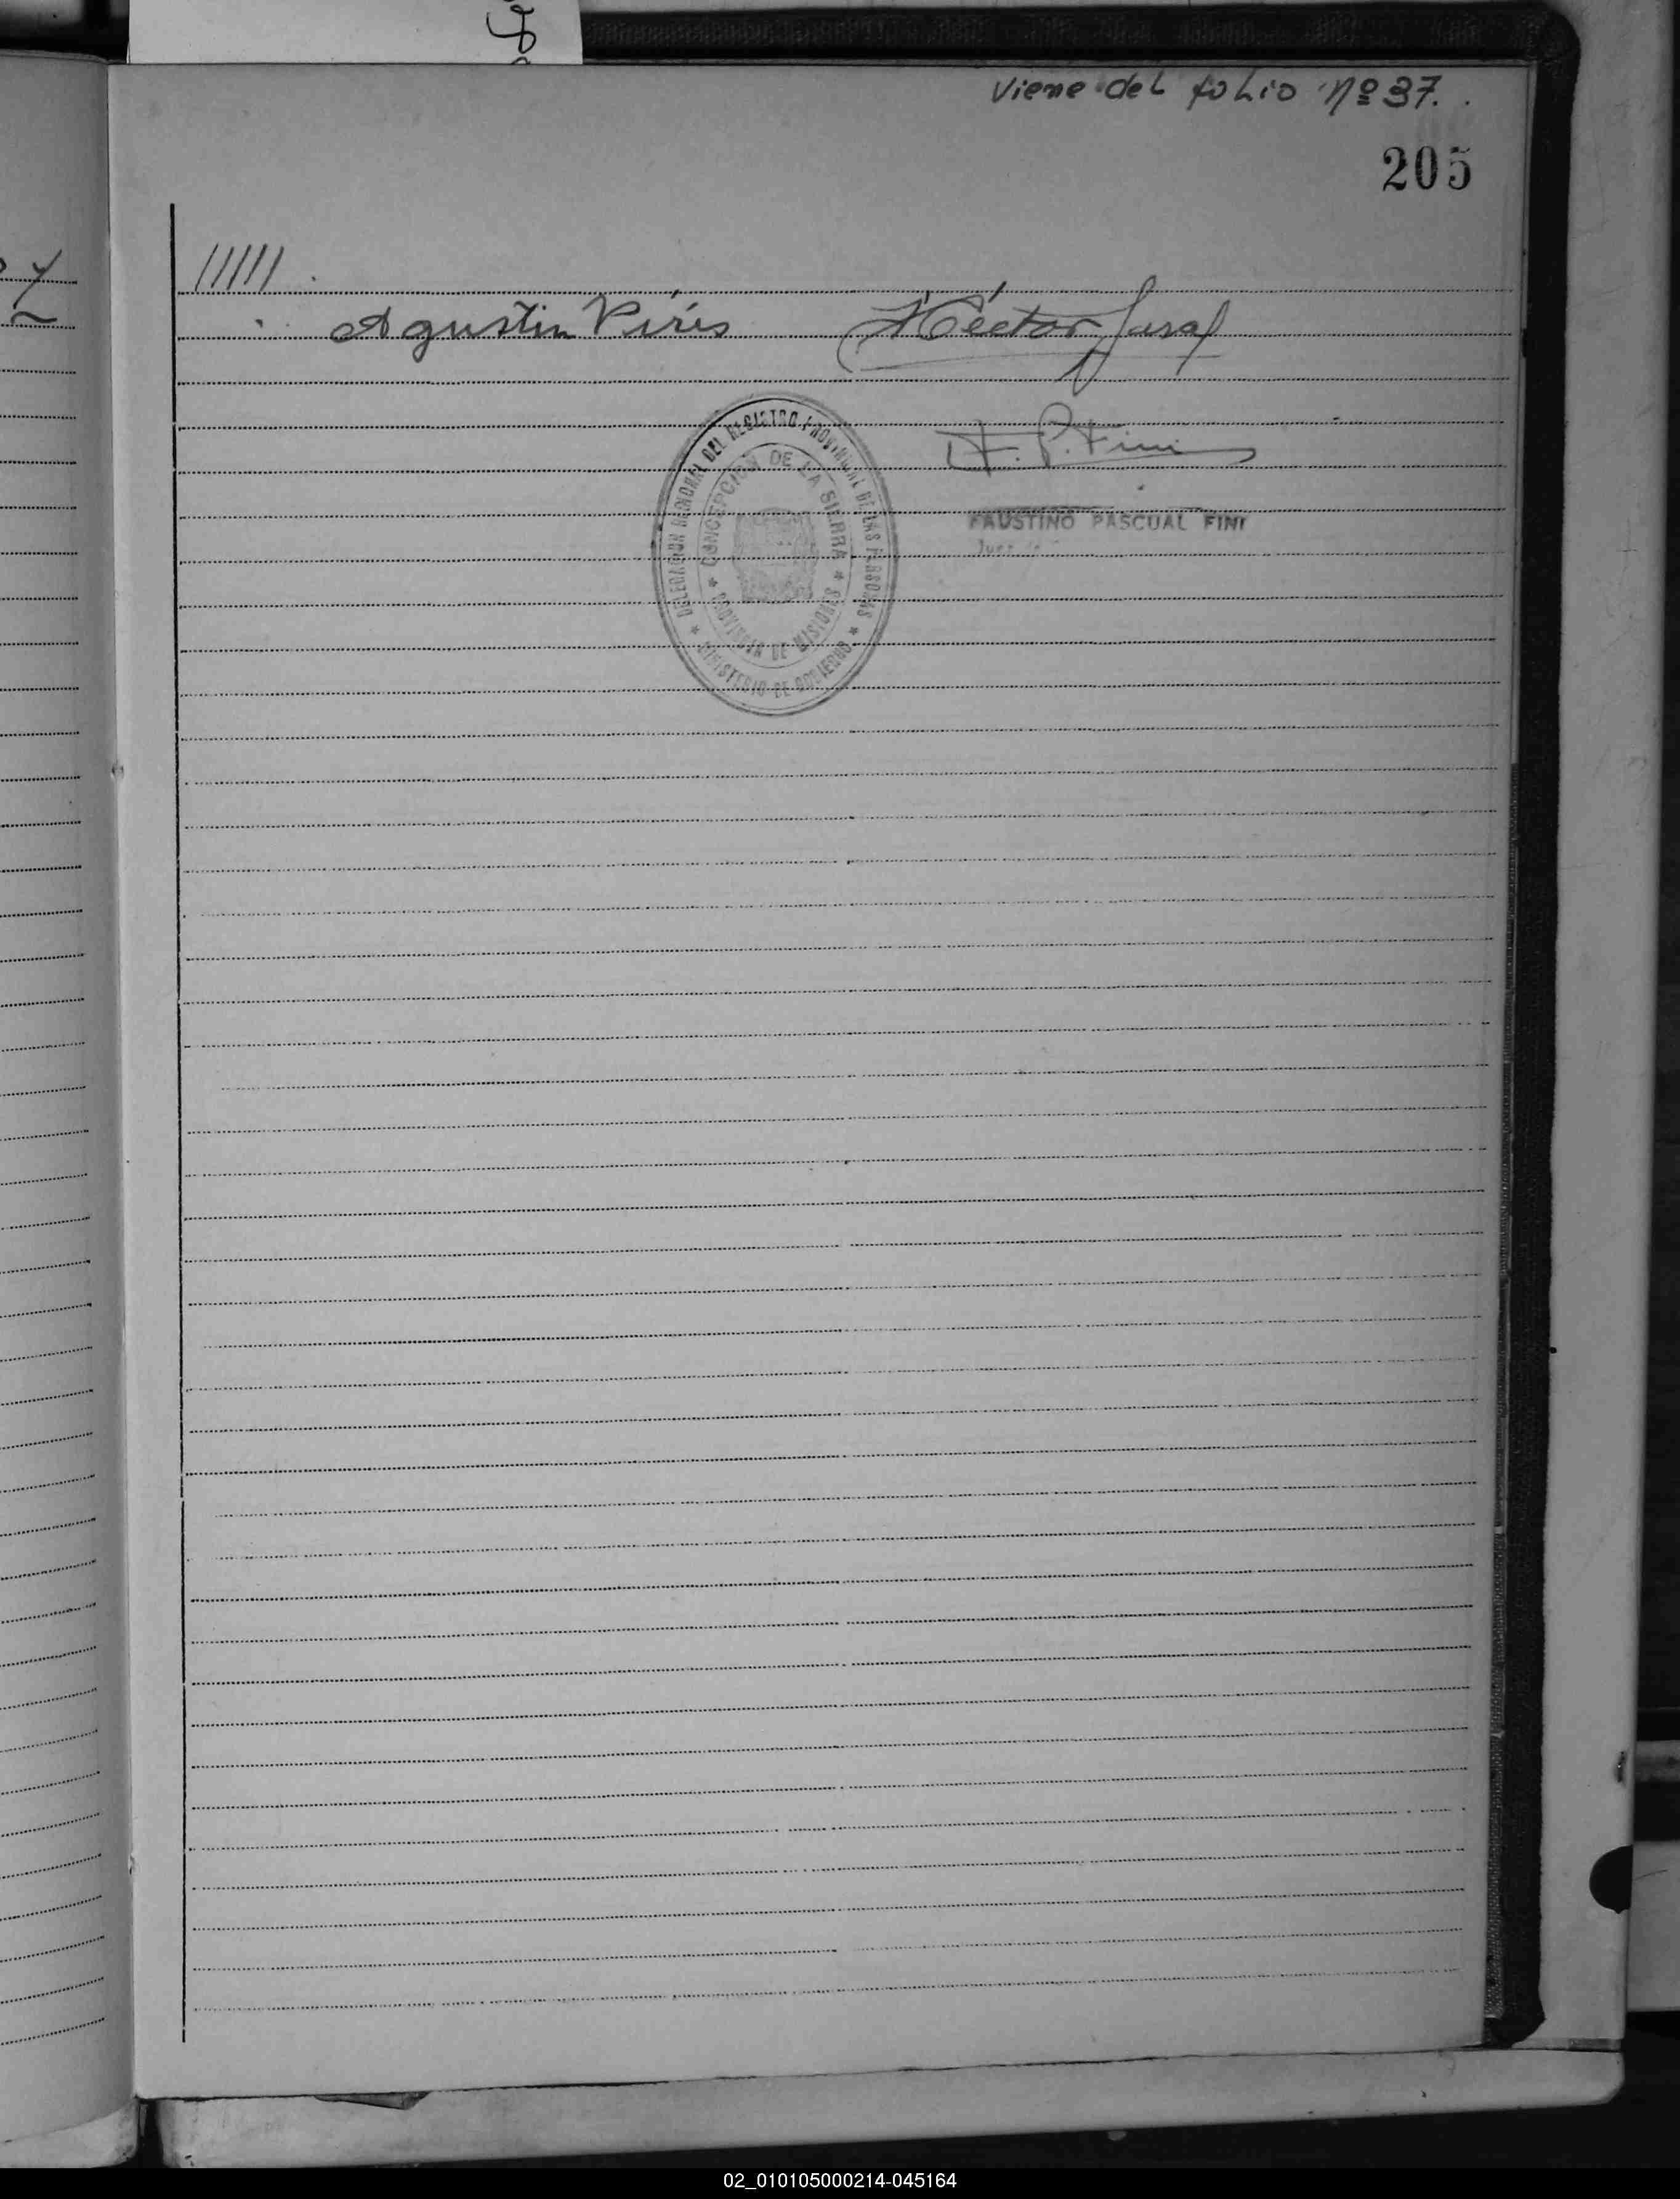 Viene del folio Nº 37.
205
//////
Agustin Piris Héctor
F. P. Fini
DELEGACION REGIONAL DEL REGISTRO PROVINCIAL DE LAS PERSONAS
CONCEPCION DE LA SIERRA
PROVINCIA DE MISIONES
MINISTERIO DE GOBIERNO
FAUSTINO PASCUAL FINI
Juez de
02_010105000214-045164